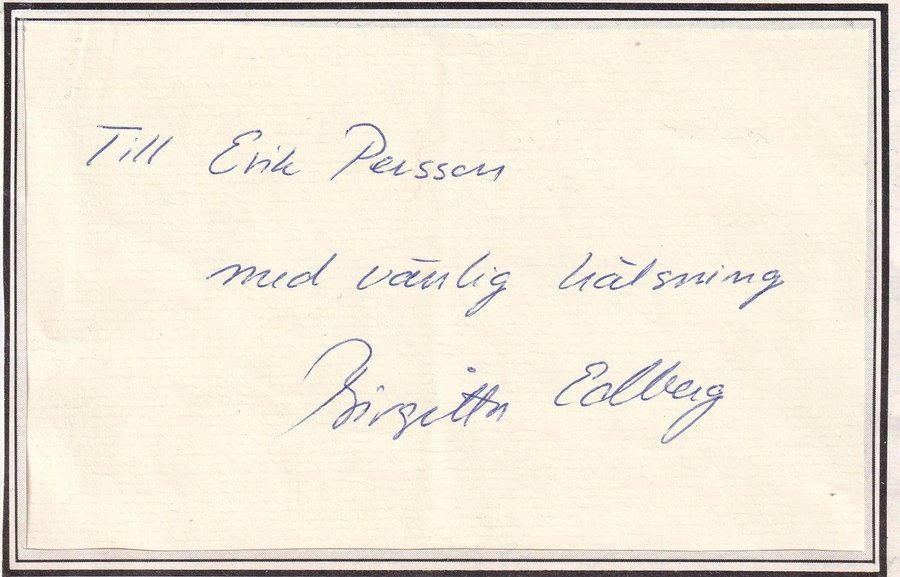 Till Erik Persson
med vänlig hälsning
Birgitta Edberg